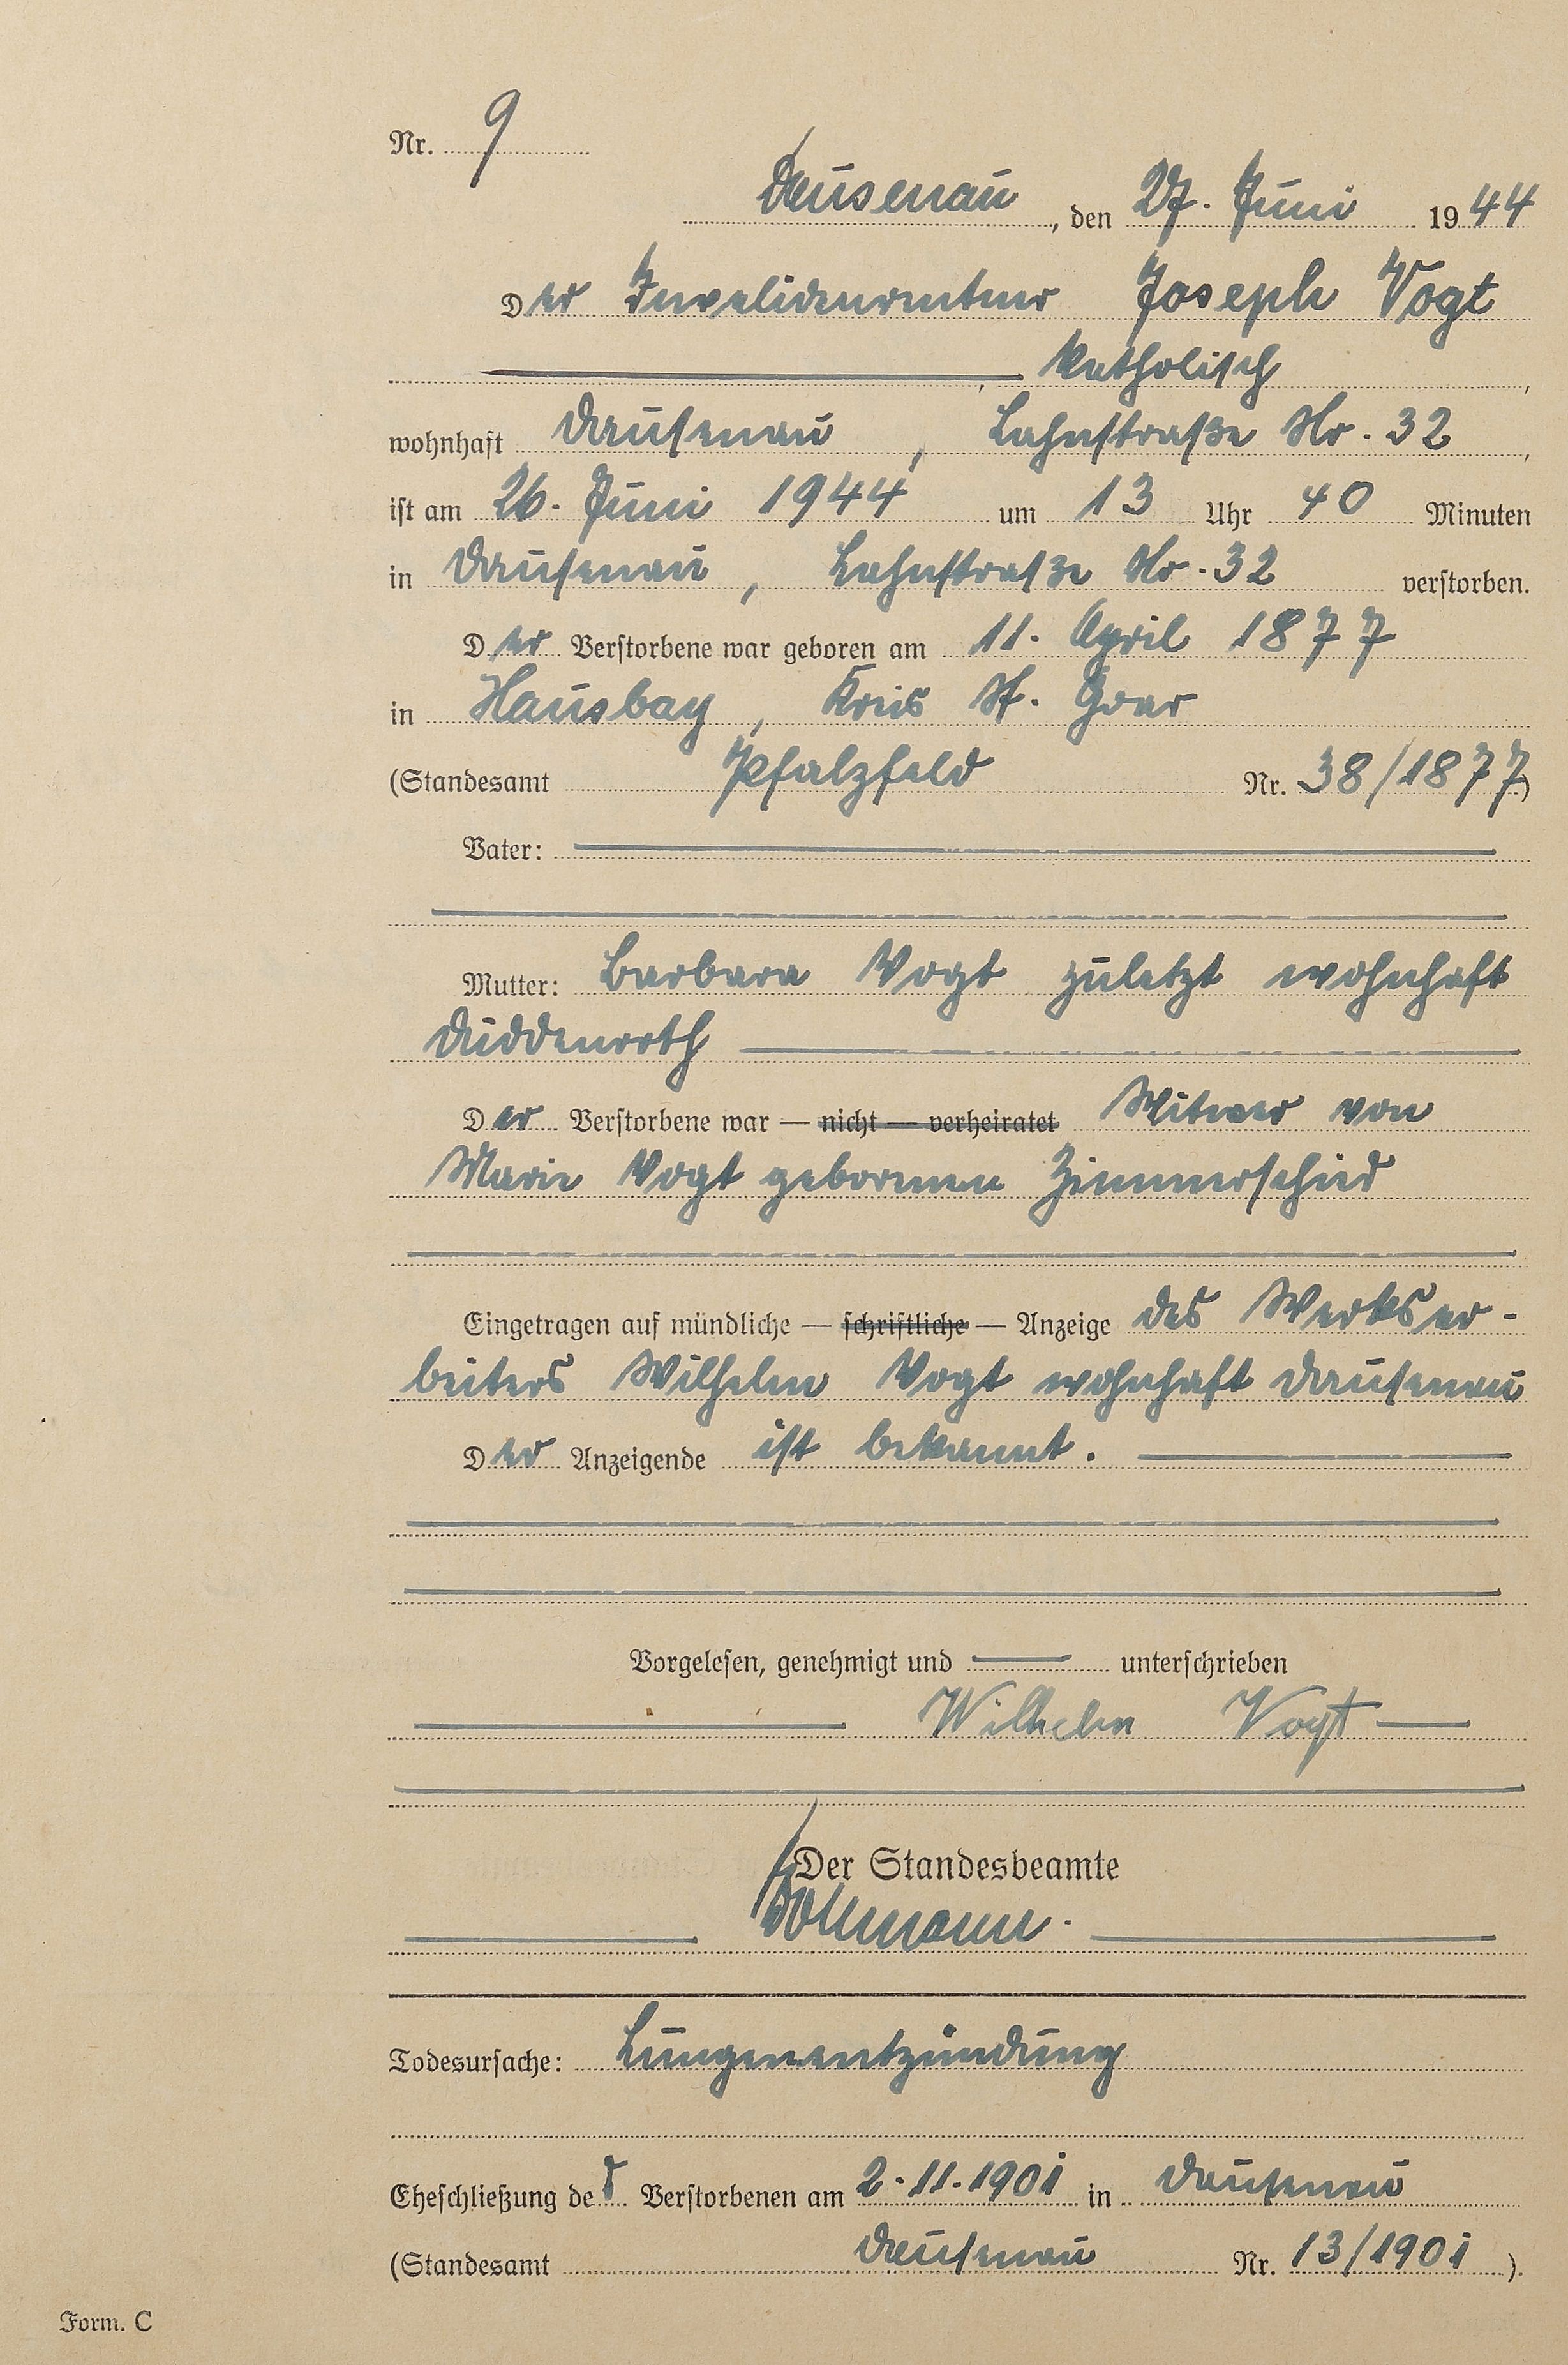 Nr. 9
Dausenau, den 27. Juni 1944
Der Invalidenrentner Joseph Vogt
, katholisch,
wohnhaft Dausenau, Lahnstraße Nr. 32,
ist am 26. Juni 1944 um 13 Uhr 40 Minuten
in Dausenau, Lahnstraße Nr. 32 verstorben.
Der Verstorbene war geboren am 11. April 1877
in Hausbay, Kreis St. Goar
(Standesamt Pfalzfeld Nr. 38/1877)
Vater:
Mutter: Barbara Vogt zuletzt wohnhaft
Duddenroth
Der Verstorbene war — nicht — verheiratet Witwer von
Marie Vogt geborenen Zimmerschied
Eingetragen auf mündliche — schriftliche — Anzeige des Werksar-
beiters Wilhelm Vogt wohnhaft Dausenau
Der Anzeigende ist bekannt.
Vorgelesen, genehmigt und unterschrieben
Wilhelm Vogt
Der Standesbeamte
Todesursache: Lungenentzündung
Eheschließung des Verstorbenen am 2.11.1901 in Dausenau
(Standesamt Dausenau Nr. 13/1901).
Form. C